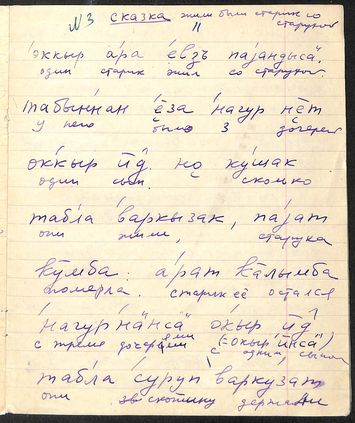 №3 сказка жили были старик со
старухой
11
о́ккыр а́ра е̄вэ̨ паjандысӓ.
один старик жил со старухой
табын́нан е̄за на́гур не̄т
у него было 3 дочерей
о́ккыр ӣд. но̨ ку́шак
один сын. сколько
табла ва́ркызак, паjат
они жили, старуха
кӯмба. а́рат ка̄лымба
померла. старик её остался
на́гур нӓнсӓ о́кыр ӣд
с тремя дочерьми (= окыр ӣнсӓ)
с одним сыном
табла су́руп ва́ркузат
они зв скотину держали